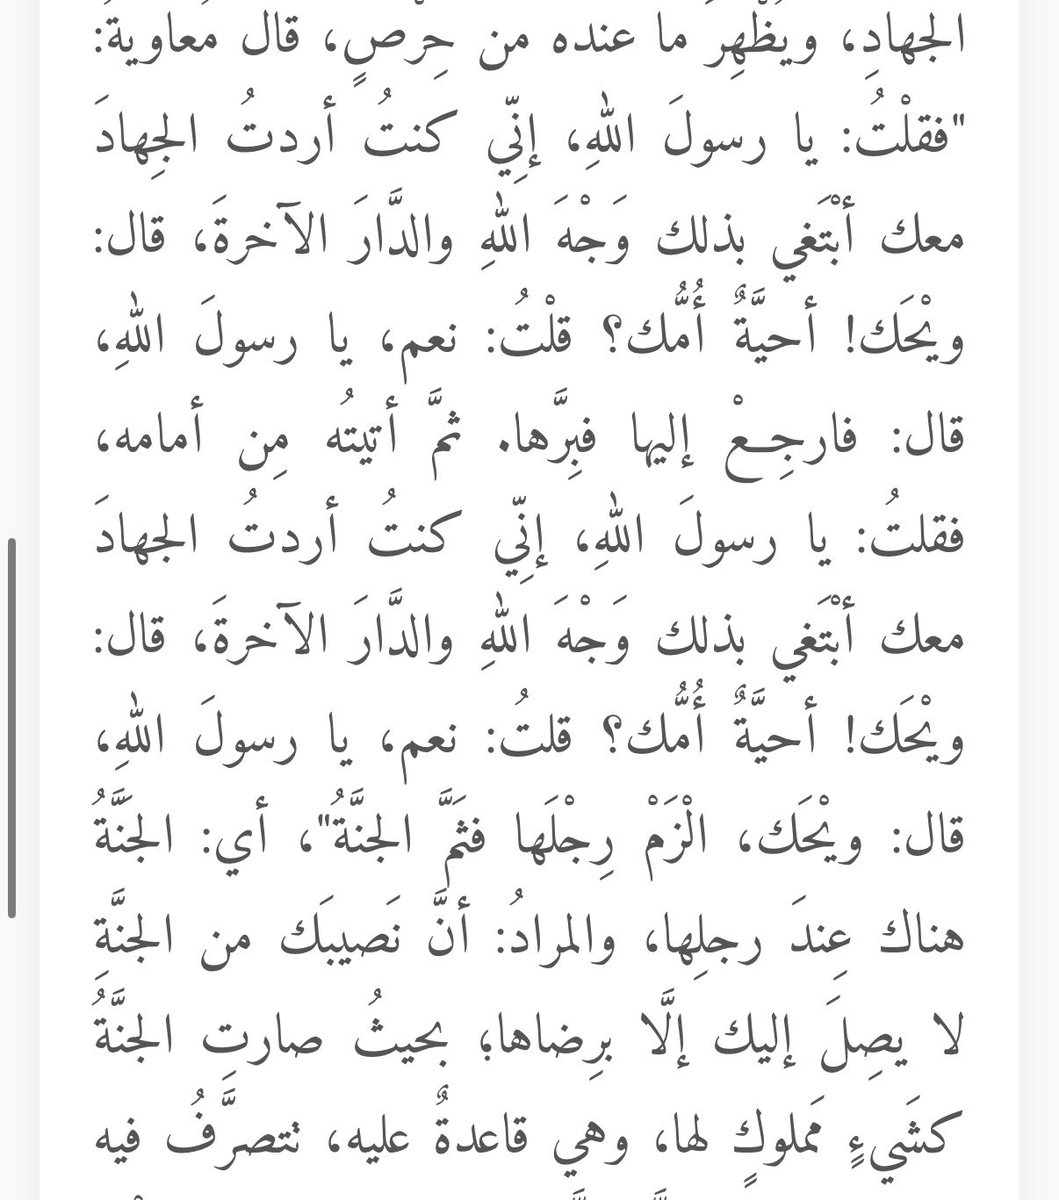 الجهادِ، ويَظْهِرَ ما عنده من حِرْصٍ، قال مُعاويةُ:
"فقلْتُ: يا رسولَ اللهِ، إنِّي كنتُ أردتُ الجِهادَ
معك أبْتَغي بذلك وَجْهَ اللهِ والدَّارَ الآخرةَ، قال:
ويْحَك! أحيَّةٌ أُمُّك؟ قلْتُ: نعم، يا رسولَ اللهِ،
قال: فارجِـعْ إليها فبِرَّها. ثمَّ أتيتُه مِن أمامه،
فقلتُ: يا رسولَ اللهِ، إنِّي كنتُ أردتُ الجهادَ
معك أبْتَغي بذلك وَجْهَ اللهِ والدَّارَ الآخرةَ، قال:
ويْحَك! أحيَّةٌ أُمُّك؟ قلتُ: نعم، يا رسولَ اللهِ،
قال: ويْحَك، الْزَمْ رِجْلَها فثَمَّ الجنَّةُ"، أي: الجَنَّةُ
هناك عِندَ رجلِها، والمرادُ: أنَّ نَصيبَك من الجنَّةِ
لا يصِلَ إليك إلَّا برِضاها؛ بحيثُ صارتِ الجنَّةُ
كشَيءٍ مَملوكٍ لها، وهي قاعدةٌ عليه، تتصرَّفُ فيه